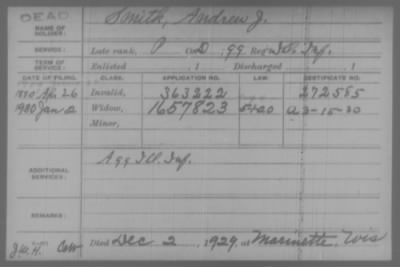 DEAD
NAME OF SOLDIER: Smith, Andrew J.
SERVICE: Late rank, P Co. D, 99 Reg't Ill. Inf.
TERM OF SERVICE: Enlisted , 1 Discharged , 1
DATE OF FILING. CLASS. APPLICATION NO. LAW. CERTIFICATE NO.
1880 Apr. 26 Invalid, 363222 272555
1930 Jan 2 Widow, 1657823 A 3-15-30
Minor,
ADDITIONAL SERVICES: A 99 Ill. Inf.
REMARKS:
Died Dec 2, 1929 at Marinette, Wis